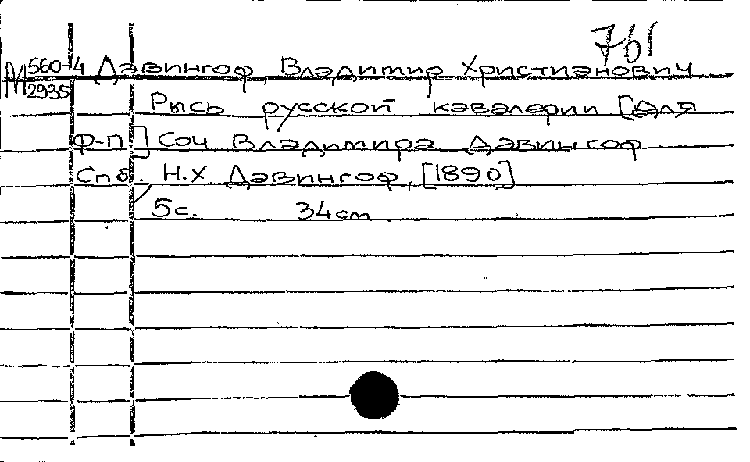 761
М 560-4 Дэвингоф, Владимир Христианович
2935
Рысь русской кавалерии [Для
ф-п] Соч Владимира Дэвингоф
Спб. Н.Х Дэвингоф, [1890]
5с. 34см.